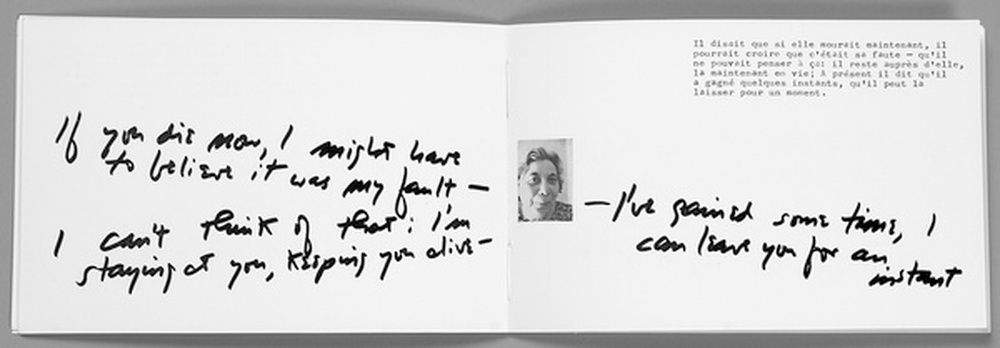 If you die now, I might have
to believe it was my fault —
I can't think of that: I'm
staying at you, keeping you alive —
Il disait que si elle mourait maintenant, il
pourrait croire que c'était sa faute — qu'il
ne pouvait penser à ça: il reste auprès d'elle,
la maintenant en vie; A présent il dit qu'il
a gagné quelques instants, qu'il peut la
laisser pour un moment.
— I've gained some time, I
can leave you for an
instant